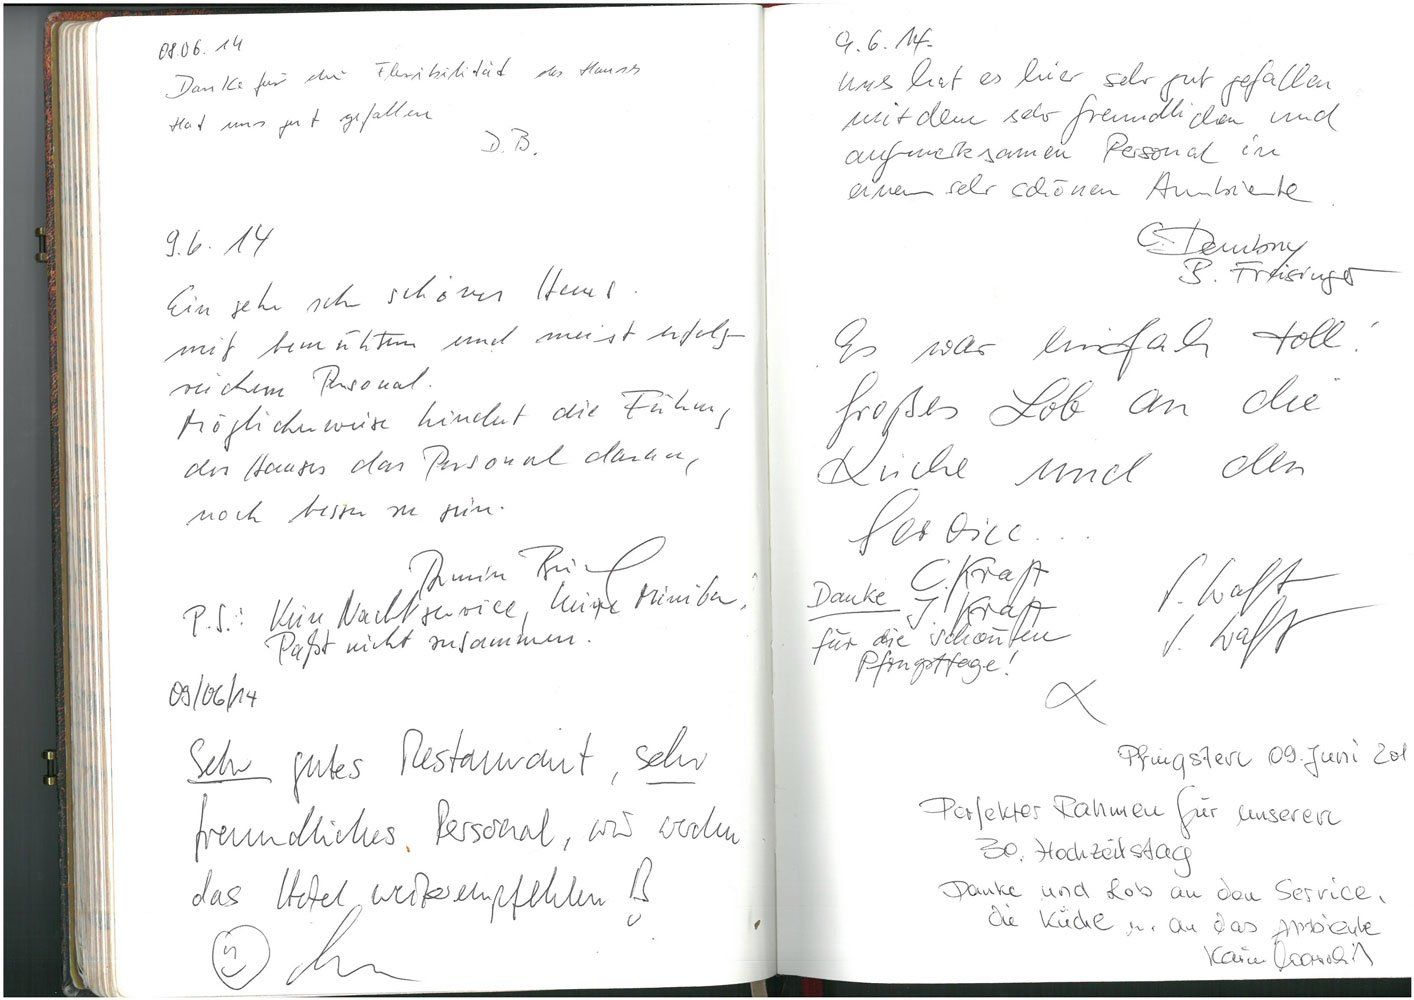 08.06.14
Danke für die Flexibilität des Hauses
Hat uns gut gefallen
D.B.
9.6.14
Ein sehr sehr schönes Haus.
mit bemühtem und meist erfolg-
reichem Personal.
Möglicherweise hindert die Führung
des Hauses das Personal daran,
noch besser zu sein.
P.S.: Kein Nachtservice, keine Minibar,
Paßt nicht zusammen.
09/06/14
Sehr gutes Restaurant, sehr
freundliches Personal, wir werden
das Hotel weiterempfehlen!
9.6.14.
uns hat es hier sehr gut gefallen
mit dem sehr freundlichen und
aufmerksamen Personal in
einem sehr schönen Ambiente.
B. Freisinger
Es war einfach toll!
Großes Lob an die
Küche und den
Service...
C. Kraft
Danke J. Kraft
für die schönen
Pfingsttage!
Pfingsten 09. Juni 201
Perfekter Rahmen für unseren
30. Hochzeitstag
Danke und Lob an den Service,
die Küche u. an das Ambiente